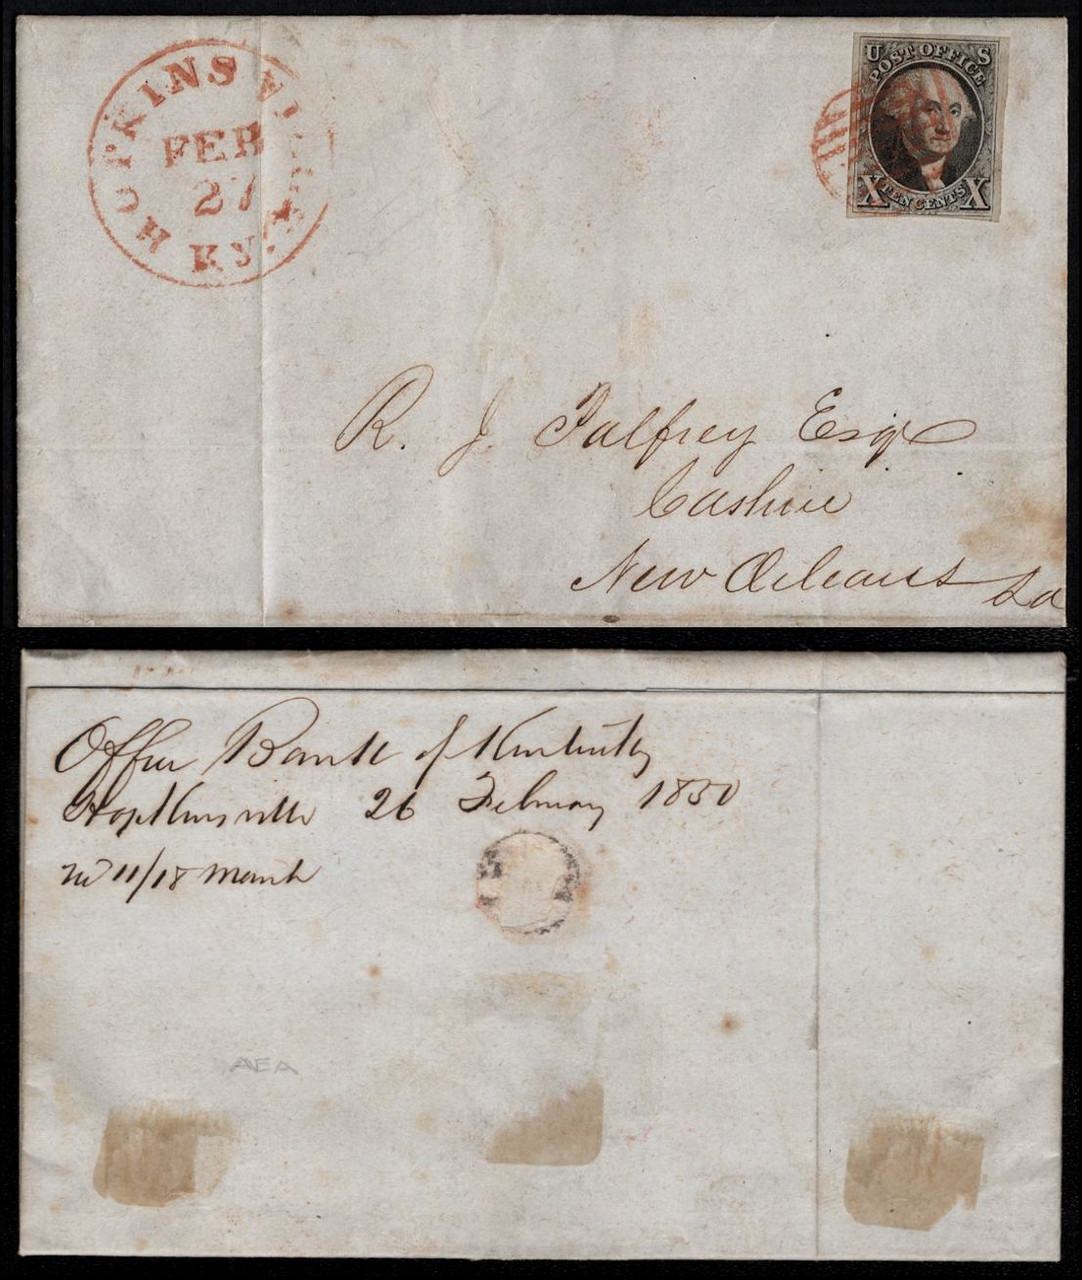 HOPKINSVILLE KY.
FEB
27
U S
POST OFFICE
X TEN CENTS X
R. J. Palfrey Esqr
Cashier
New Orleans La
Office Bank of Kentucky
Hopkinsville 26 February 1850
11/18 March
AEA